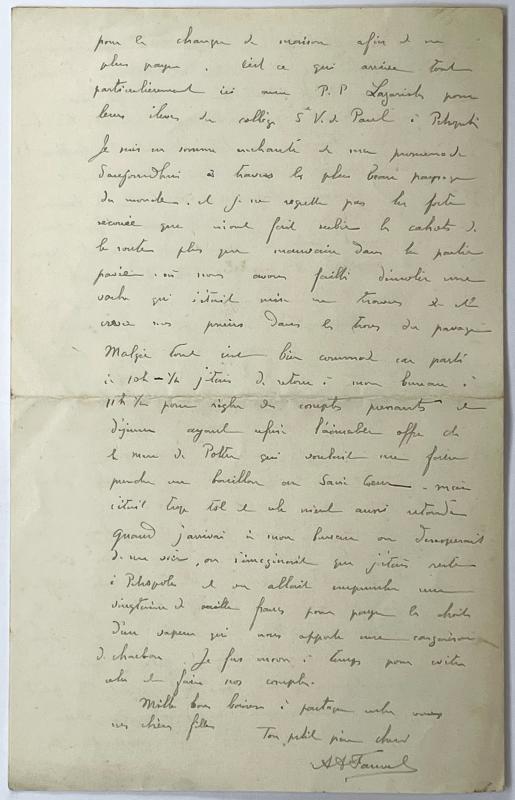 pour les changer de maison afin de ne
plus payer. C'est ce qui arrive tout
particulièrement ici aux P.P. Lazaristes pour
leurs élèves du collège St V. de Paul à Petropolis
Je suis en somme enchanté de ma promenade
d'aujourd'hui à travers les plus beaux paysages
du monde. et je ne regrette pas les fortes
secousses que m'ont fait subir les cahots de
la route plus que mauvaise dans la partie
pavée. où nous avons failli démolir une
vache qui s'était mise en travers et
crever nos pneus dans les trous du pavage
Malgré tout c'est bien commode car parti
à 10h-1/4 j'étais de retour à mon bureau à
11h 1/2 pour régler des comptes pressants et
déjeuner ayant refusé l'aimable offre de
la mère de Potter qui voulait me faire
prendre un bouillon au Sacré Coeur - mais
c'était trop tôt et cela m'eut aussi retardé
Quand j'arrivai à mon bureau on désespérait
de me voir, on s'imaginait que j'étais resté
à Petropolis et on allait emprunter une
vingtaine de mille francs pour payer les droits
d'un vapeur qui nous apporte une cargaison
de charbon. Je fus encore à temps pour éviter
cela et faire nos comptes.
Mille bons baisers à partager entre vous
mes chères filles Ton petit père chéri
A A Fauvel